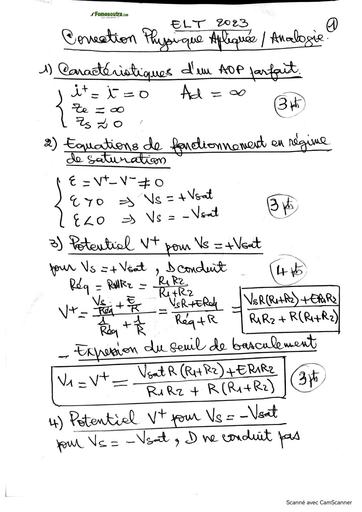 Fomesoutra.com
ELT 2023
Correction Physique Apliquée / Analogie.
1
1) Caractéristiques d'un AOP parfait.
i⁺ = i⁻ = 0 Ad = ∞
Ze = ∞
Zs ≈ 0
3 pts
2) Equations de fonctionnement en régime
de saturation
Ɛ = V⁺ - V⁻ ≠ 0
Ɛ > 0 ⇒ Vs = +Vsat
Ɛ < 0 ⇒ Vs = -Vsat
3 pts
3) Potentiel V⁺ pour Vs = +Vsat
pour Vs = +Vsat, D conduit
4 pts
Réq = R1//R2 = R1R2 / (R1+R2)
V⁺ = (Vs/Réq + E/R) / (1/Réq + 1/R) = (VsR + EReq) / (Réq + R) = (VsR(R1+R2) + ER1R2) / (R1R2 + R(R1+R2))
- Expression du seuil de basculement
V1 = V⁺ = (Vsat R (R1+R2) + ER1R2) / (R1R2 + R(R1+R2))
3 pts
4) Potentiel V⁺ pour Vs = -Vsat
pour Vs = -Vsat, D ne conduit pas
Scanné avec CamScanner